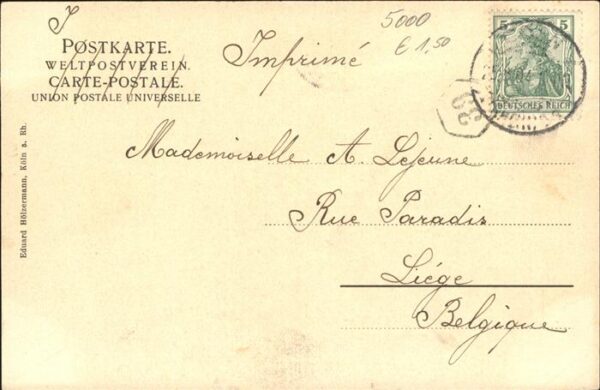 J
5000
€ 1,50
POSTKARTE.
WELTPOSTVEREIN.
CARTE-POSTALE.
UNION POSTALE UNIVERSELLE
Imprimé
5 5
DEUTSCHES REICH
Mademoiselle A. Lejeune
Rue Paradis
Liége
Belgique
Eduard Hölzermann, Köln a. Rh.